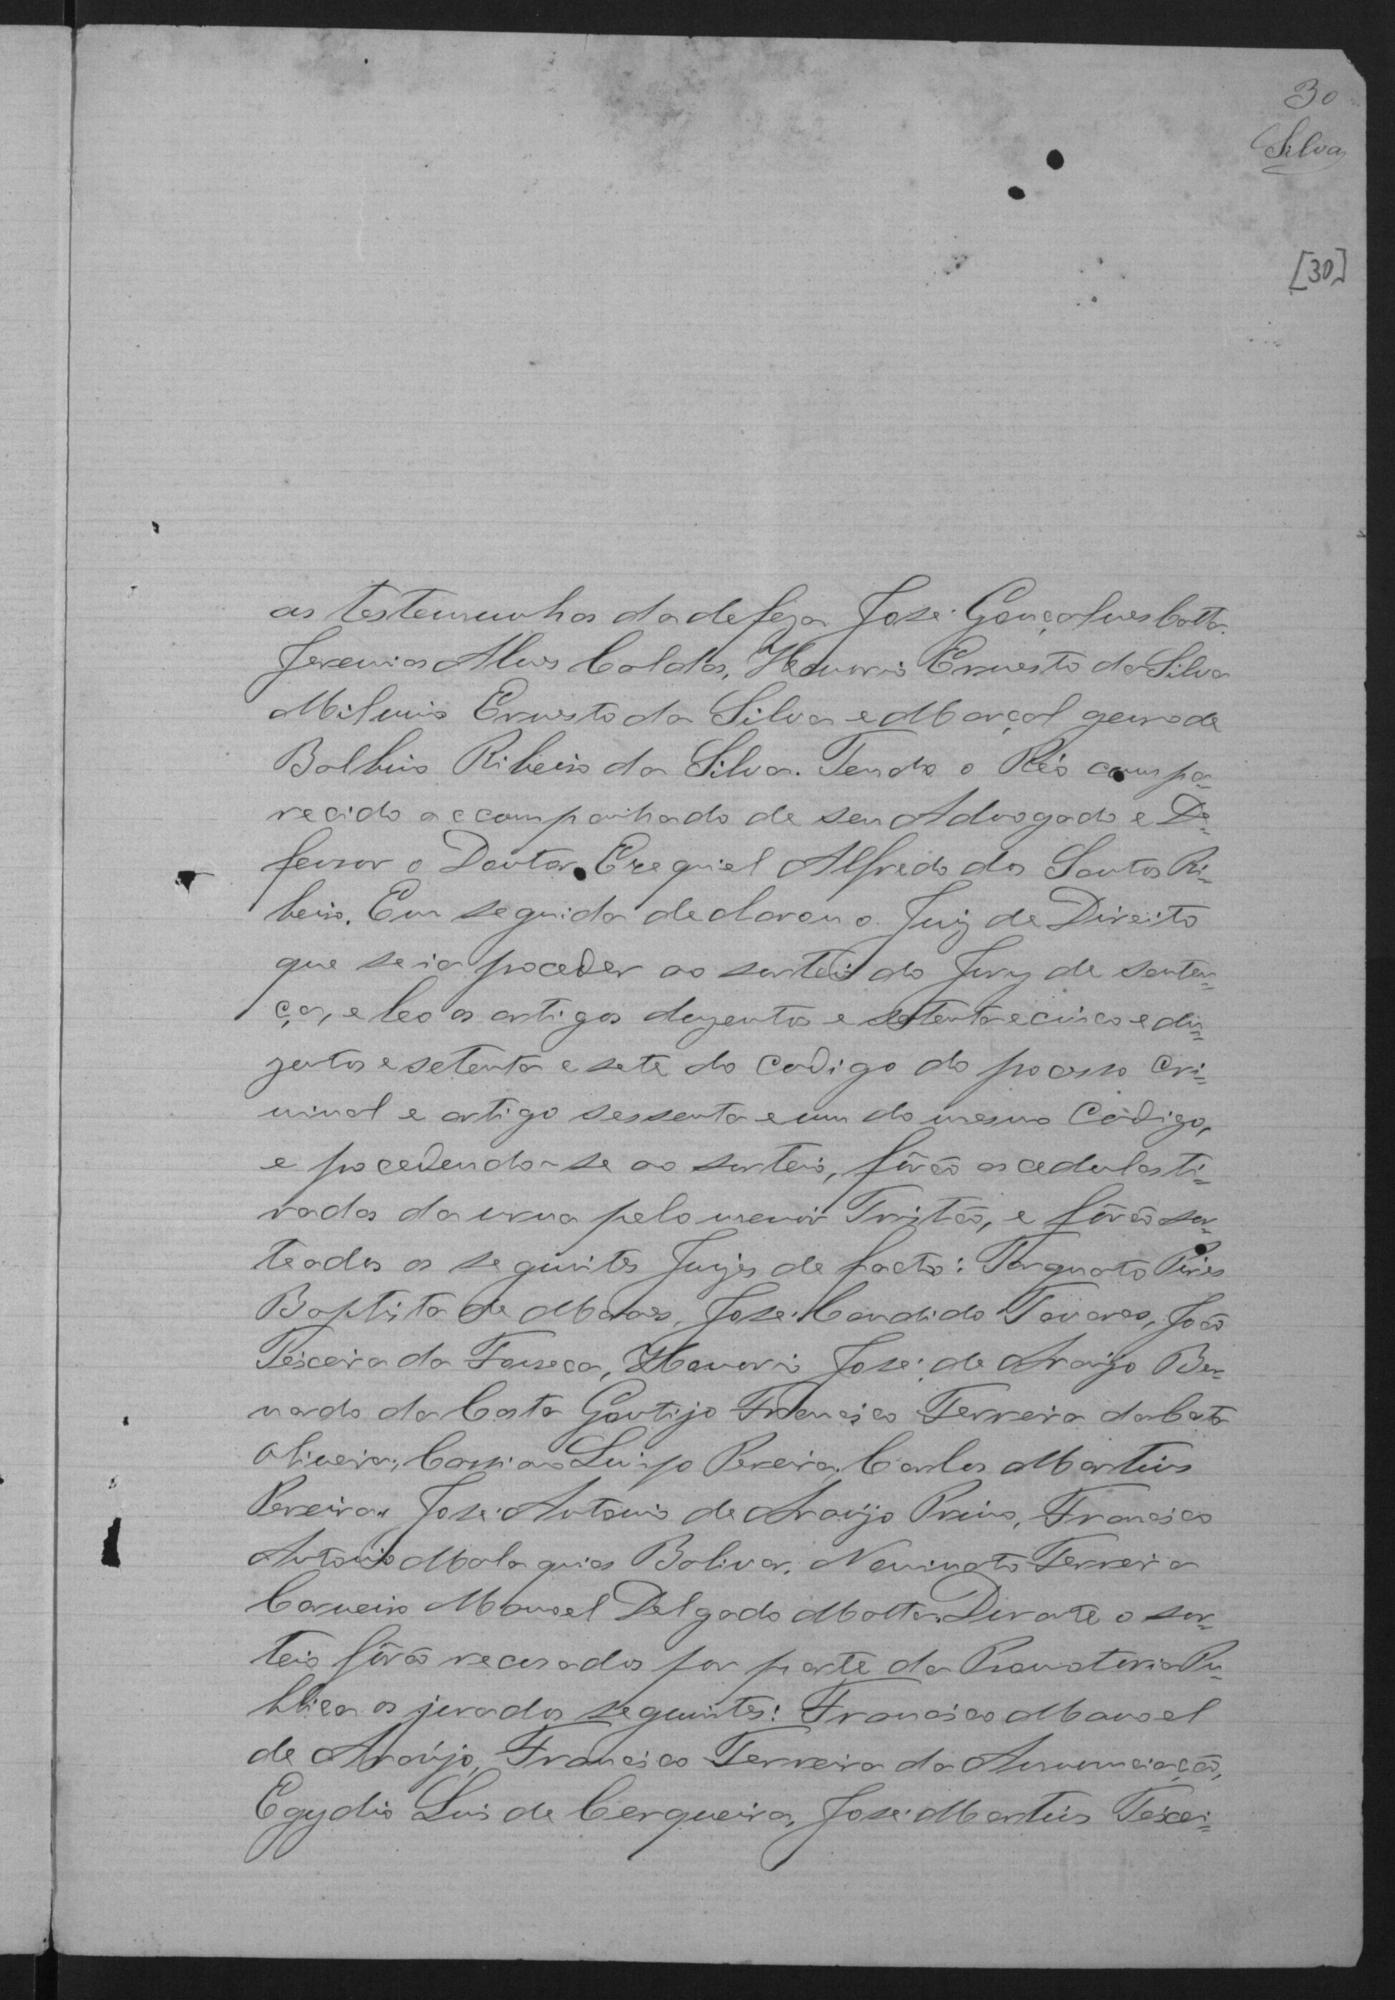 30
Silva
[30]
as testemunhas da defeza José Gonçalves Cotta.
Jeremias Alves Caldas, Honorio Ernesto da Silva
Ernesto da Silva e Marçal genro de
Balbino Ribeiro da Silva. Tendo o Réo compa-
recido accompanhado de seu Advogado e De-
fensor o Doutor Ezequiel Alfredo dos Santos Ri-
beiro. Em seguida declarou o Juiz de Direito
que se ia proceder ao sorteio do Jury de senten-
ça, e leo os artigos duzentos e setenta e cinco e du-
zentos e setenta e sete do codigo do processo cri-
minal e artigo sessenta e um do mesmo Codigo,
e procedendo-se ao sorteio, fôrão as cedulas ti-
radas da urna pelo menor Tristão, e fôrão sor-
teados os seguintes Juizes de facto: Torquato Pires
Baptista de Moraes, José Candido Tavares, João
Teixeira da Fonseca, Honorio José de Araujo Ber-
nardo da Costa Gontijo Francisco Ferreira da Costa
Oliveira, Cassiano Pereira, Carlos Martins
Pereira, José Antonio de Araujo Primo, Francisco
Antonio Malaquias Bolivar, Ferreira
Carneiro Manoel Delgado Motta. Durante o sor-
teio fôrão recusados por parte da Promotoria Pu-
blica os jurados seguintes: Francisco Manoel
de Araujo, Francisco Ferreira da Annunciação,
Egydio Luis de Cerqueira, José Martins Teixei-